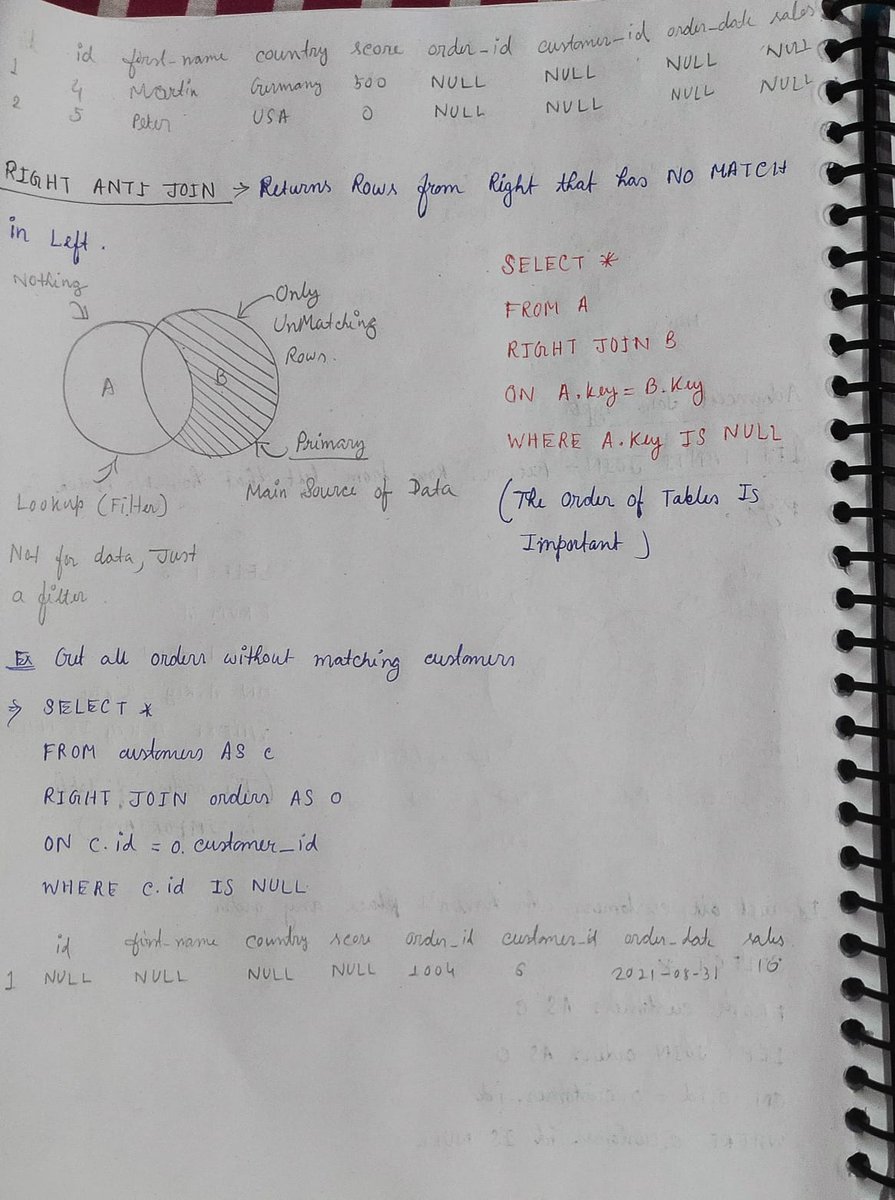 id first_name country score order_id customer_id order_date sales
1 4 Martin Germany 500 NULL NULL NULL NULL
2 5 Peter USA 0 NULL NULL NULL NULL
RIGHT ANTI JOIN → Returns Rows from Right that has NO MATCH
in Left.
Nothing
Only
UnMatching
Rows.
A
B
Primary
Main Source of Data
Lookup (Filter)
Not for data, Just
a filter
SELECT *
FROM A
RIGHT JOIN B
ON A.Key = B.Key
WHERE A.Key IS NULL
(The Order of Tables Is
Important)
Ex Get all orders without matching customers
⇒ SELECT *
FROM customers AS c
RIGHT JOIN orders AS o
ON c.id = o.customer_id
WHERE c.id IS NULL
id first_name country score order_id customer_id order_date sales
1 NULL NULL NULL NULL 1004 6 2021-08-31